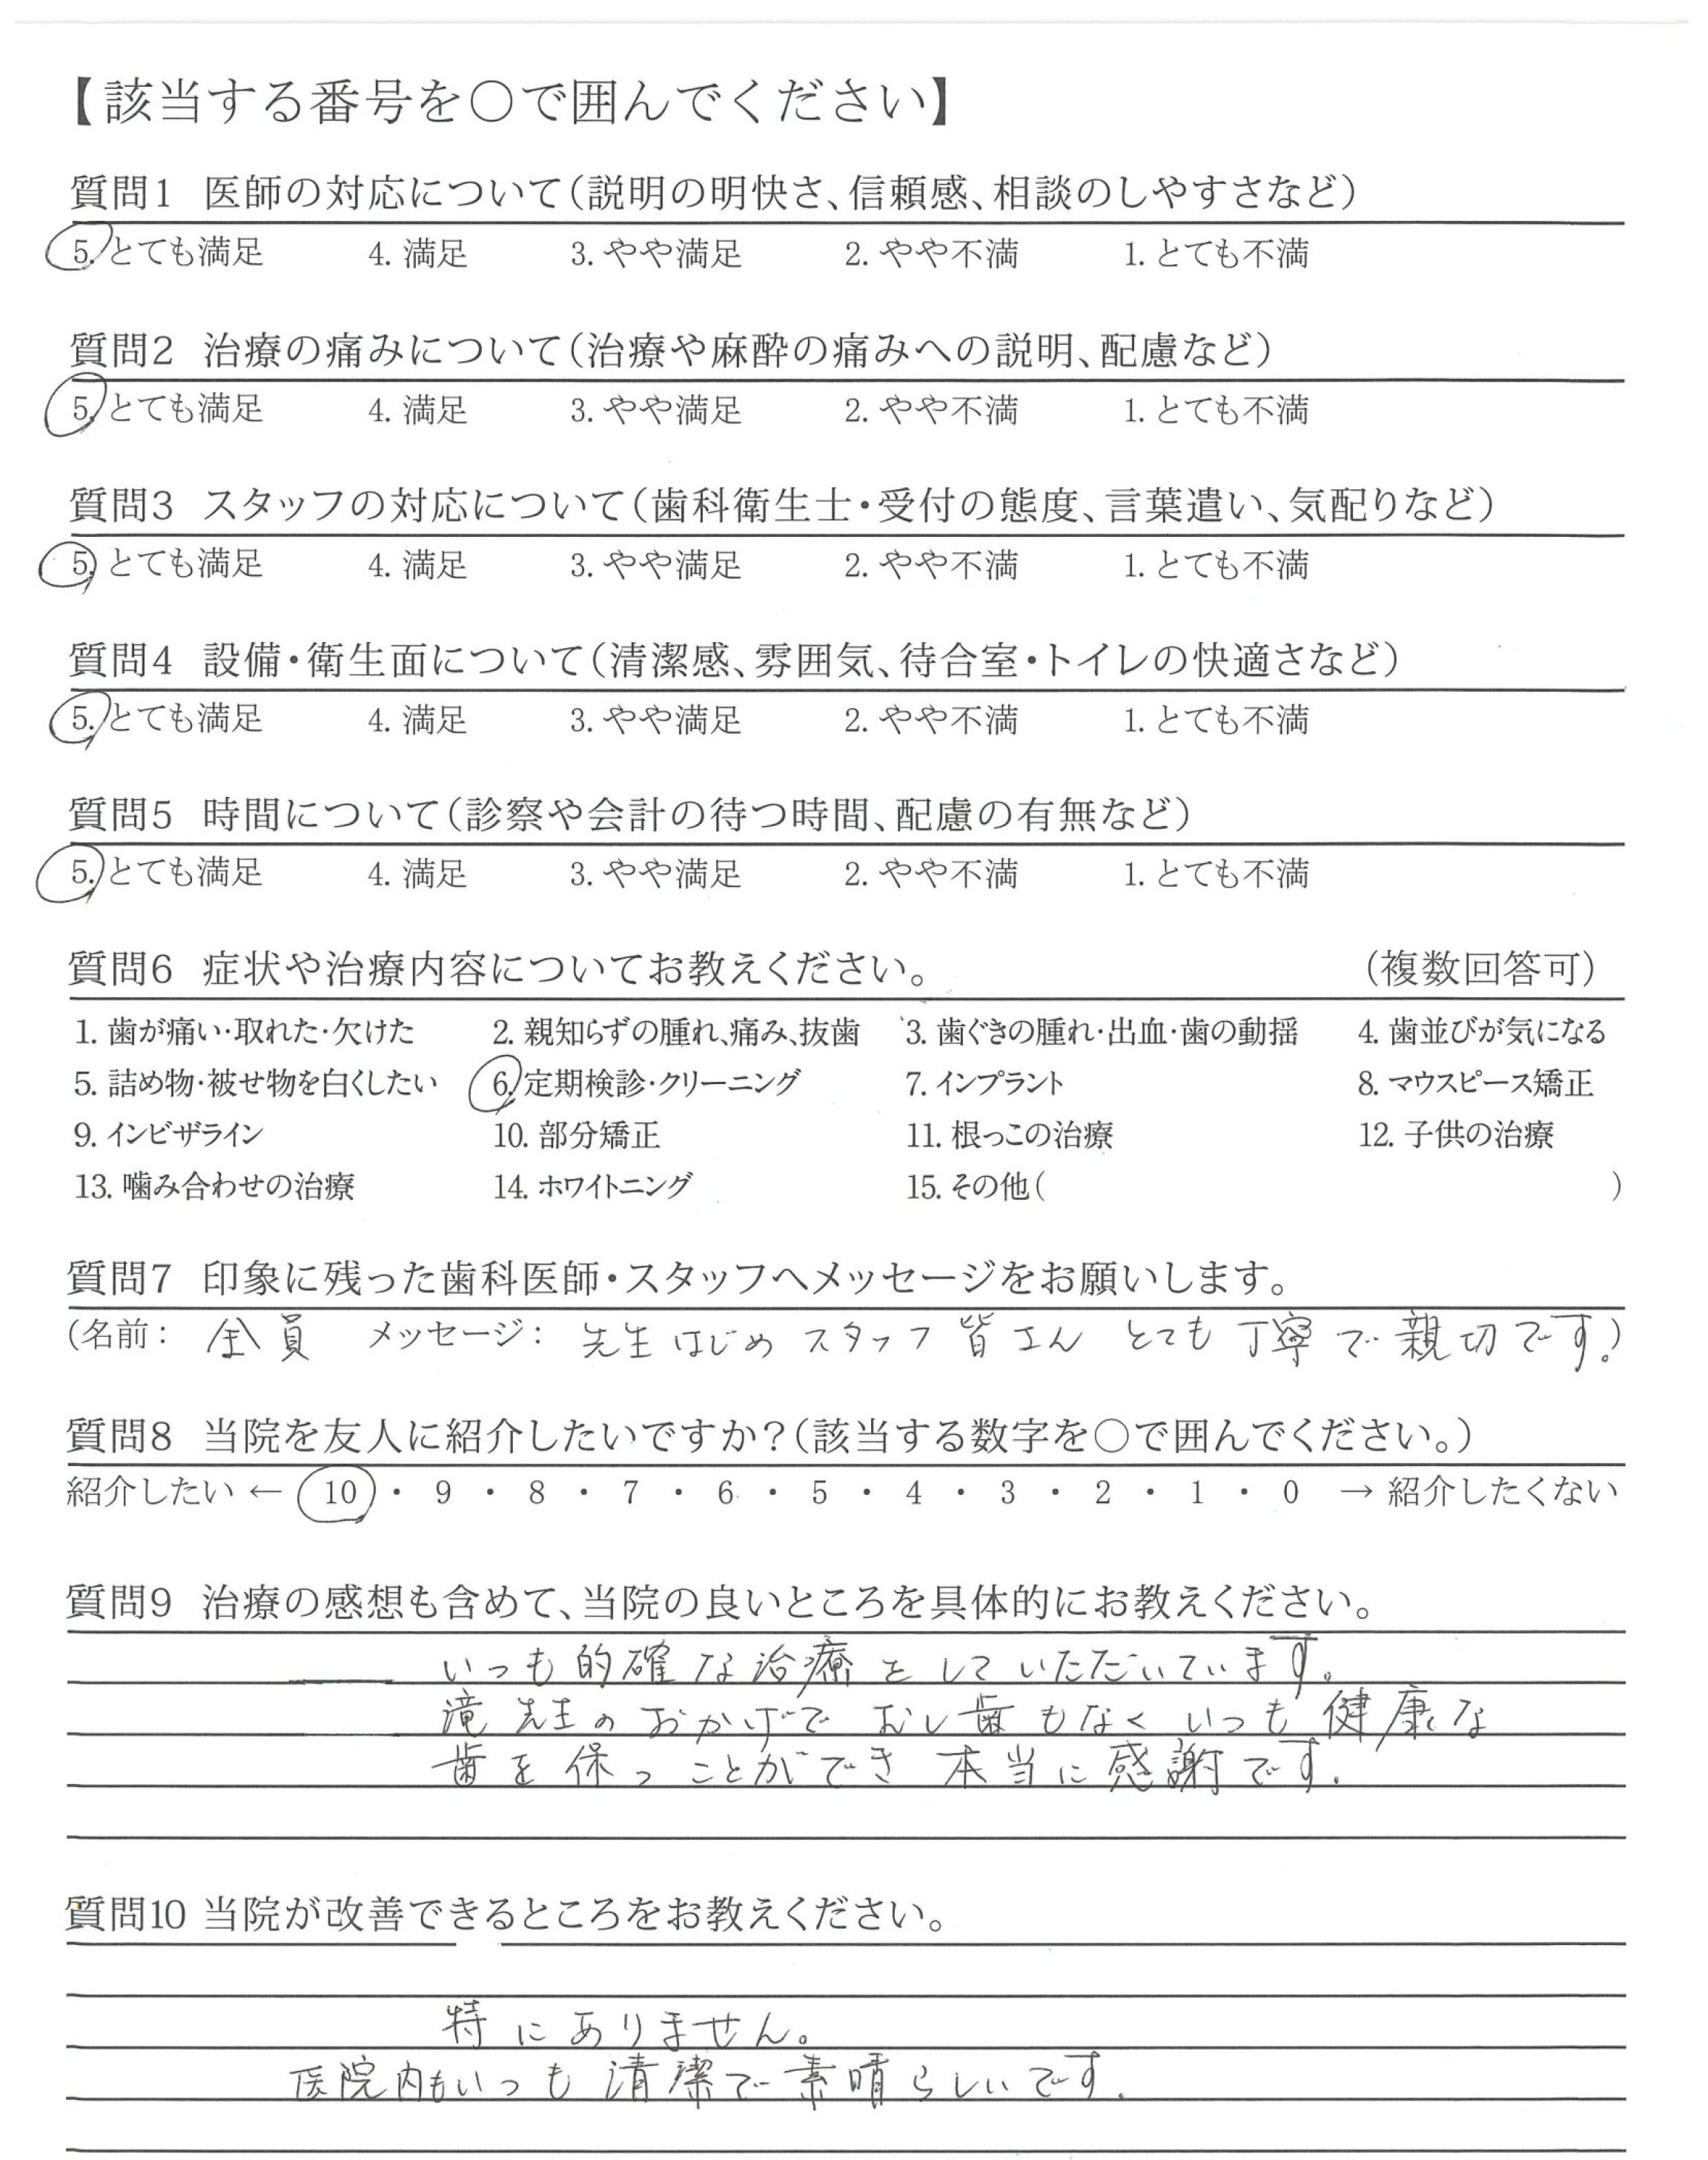 【該当する番号を〇で囲んでください】
質問1 医師の対応について(説明の明快さ、信頼感、相談のしやすさなど)
5. とても満足 4. 満足 3. やや満足 2. やや不満 1. とても不満
質問2 治療の痛みについて(治療や麻酔の痛みへの説明、配慮など)
5. とても満足 4. 満足 3. やや満足 2. やや不満 1. とても不満
質問3 スタッフの対応について(歯科衛生士・受付の態度、言葉遣い、気配りなど)
5. とても満足 4. 満足 3. やや満足 2. やや不満 1. とても不満
質問4 設備・衛生面について(清潔感、雰囲気、待合室・トイレの快適さなど)
5. とても満足 4. 満足 3. やや満足 2. やや不満 1. とても不満
質問5 時間について(診察や会計の待つ時間、配慮の有無など)
5. とても満足 4. 満足 3. やや満足 2. やや不満 1. とても不満
質問6 症状や治療内容についてお教えください。 (複数回答可)
1. 歯が痛い・取れた・欠けた 2. 親知らずの腫れ、痛み、抜歯 3. 歯ぐきの腫れ・出血・歯の動揺 4. 歯並びが気になる
5. 詰め物・被せ物を白くしたい 6. 定期検診・クリーニング 7. インプラント 8. マウスピース矯正
9. インビザライン 10. 部分矯正 11. 根っこの治療 12. 子供の治療
13. 噛み合わせの治療 14. ホワイトニング 15. その他( )
質問7 印象に残った歯科医師・スタッフへメッセージをお願いします。
(名前: 全員 メッセージ: 先生はじめスタッフ皆さんとても丁寧で親切です。)
質問8 当院を友人に紹介したいですか?(該当する数字を〇で囲んでください。)
紹介したい ← 10 ・ 9 ・ 8 ・ 7 ・ 6 ・ 5 ・ 4 ・ 3 ・ 2 ・ 1 ・ 0 → 紹介したくない
質問9 治療の感想も含めて、当院の良いところを具体的にお教えください。
いつも的確な治療をしていただいています。
滝先生のおかげでむし歯もなくいつも健康な
歯を保つことができ本当に感謝です.
質問10 当院が改善できるところをお教えください。
特にありません。
医院内もいつも清潔で素晴らしいです.